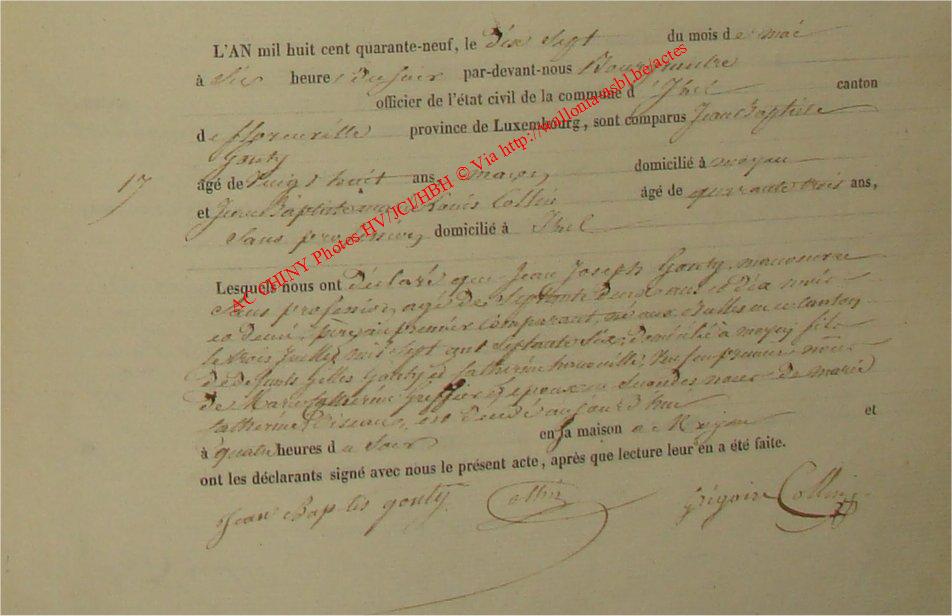 L'AN mil huit cent quarante-neuf, le dix sept du mois de mai
à six heures du soir par-devant-nous Bourgmestre
officier de l'état civil de la commune d'Izel canton
de florenville province de Luxembourg, sont comparus Jean Baptiste
Gouty
17
agé de vingt huit ans, maçon, domicilié à moyen
et Jean Baptiste Louis Collin âgé de quarante trois ans,
Sans profession domicilié à Izel
Lesquels nous ont déclaré que Jean Joseph Gouty,
Sans profession, agé de Septante deux ans et dix mois
et demi, père au premier Comparant, né aux Bulles en ce Canton
le trois Juillet mil sept cent Septante Six, domicilié à moyen fils
de defunts Gilles Gouty et Catherine
de Marie Catherine et époux en Secondes noces de marie
Catherine est décédé aujourd'hui
à quatre heures du Soir en sa maison à Moyen et
ont les déclarants signé avec nous le présent acte, après que lecture leur en a été faite.
Jean Baptis gouty Collin grégoire Collin
AC CHINY Photos HV/JCI/HBH © Via http://wallonia-nsbl.be/actes